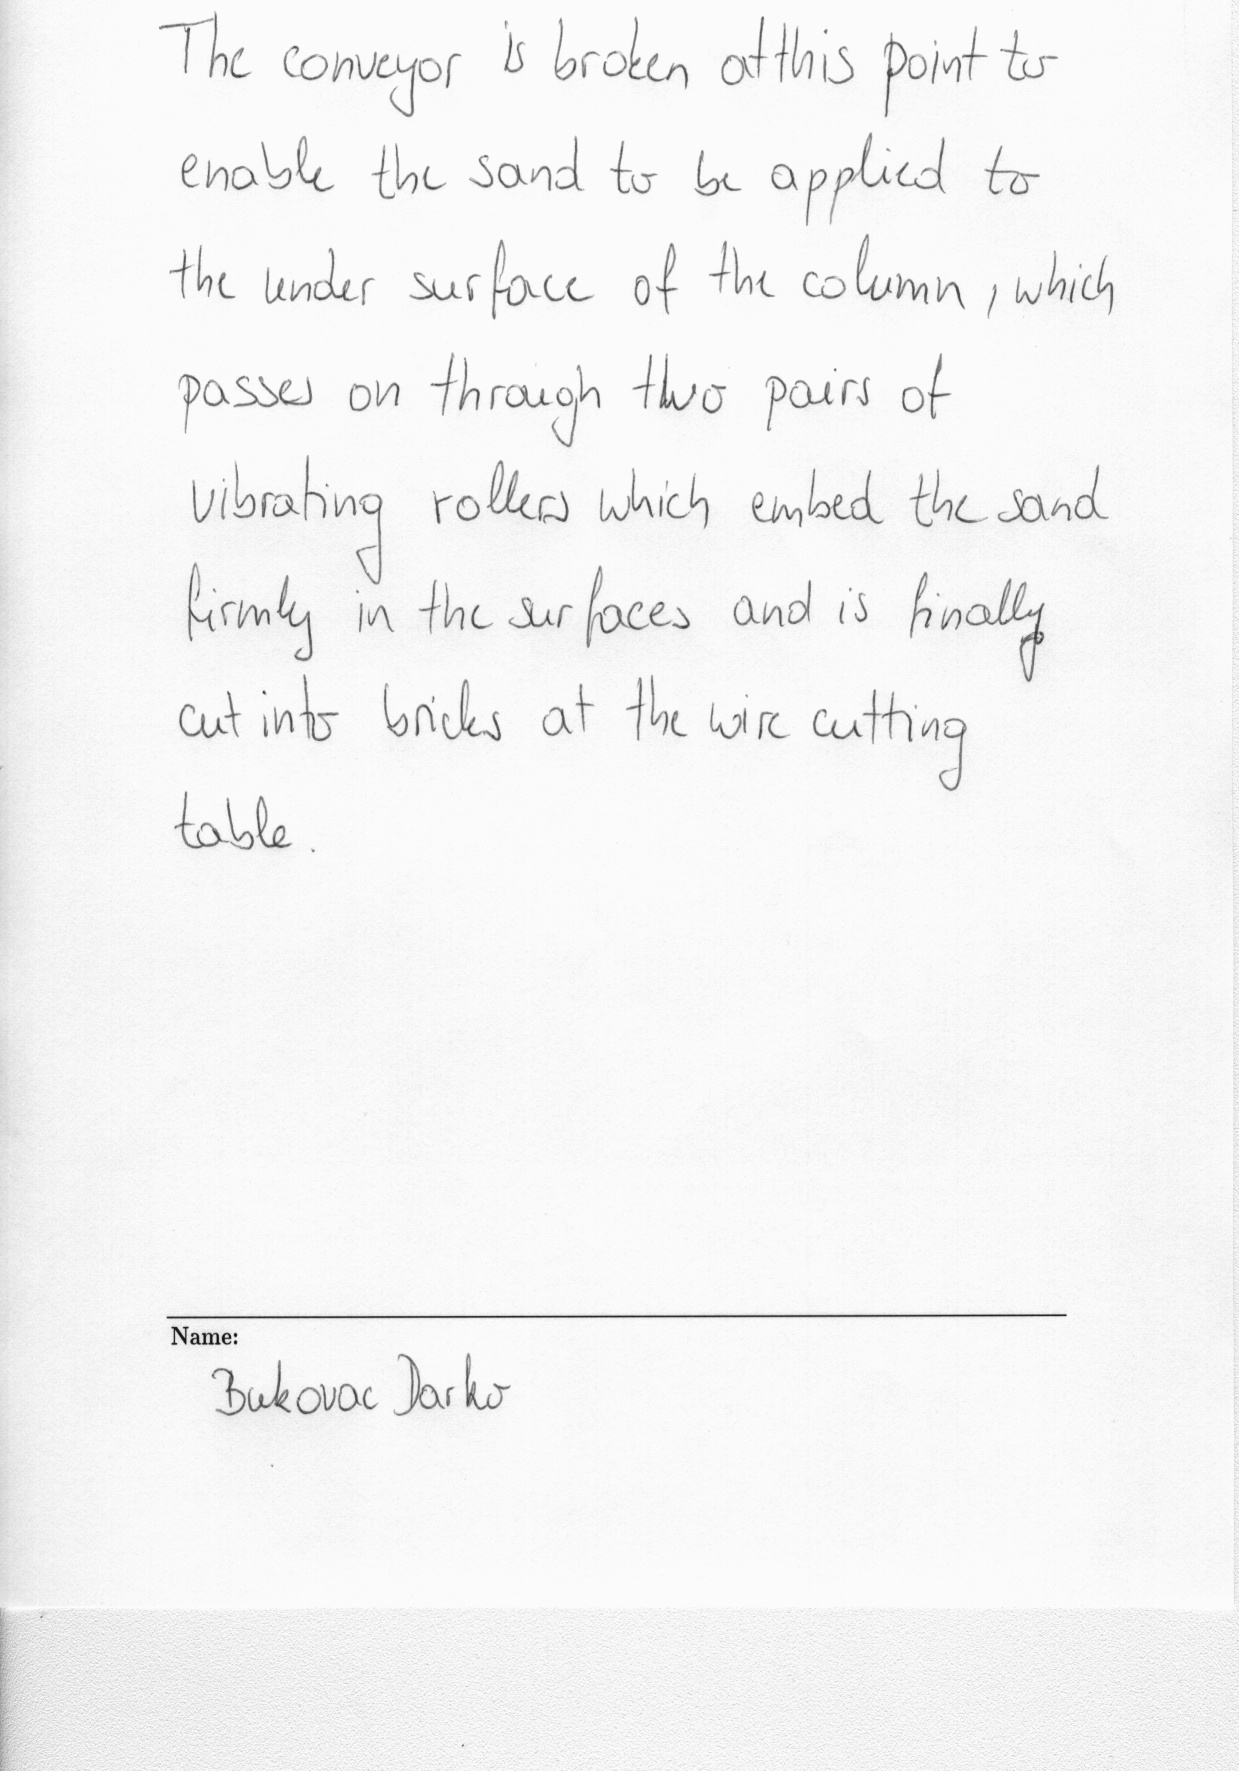 The conveyor is broken at this point to
enable the sand to be applied to
the under surface of the column, which
passes on through two pairs of
vibrating rollers which embed the sand
firmly in the surfaces and is finally
cut into bricks at the wire cutting
table.
Name:
Bukovac Darko